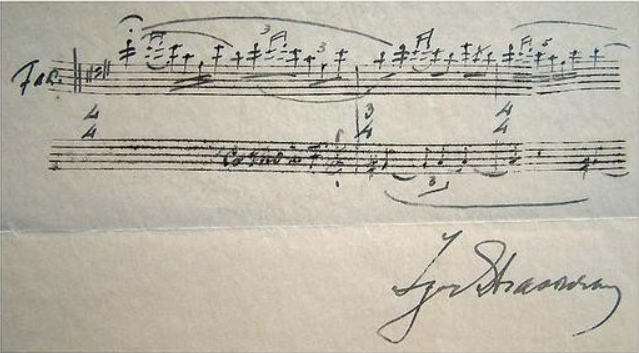 Fag.
3 3 5
4
4
3
4
4
4
Corno
3
Igor Strawinsky